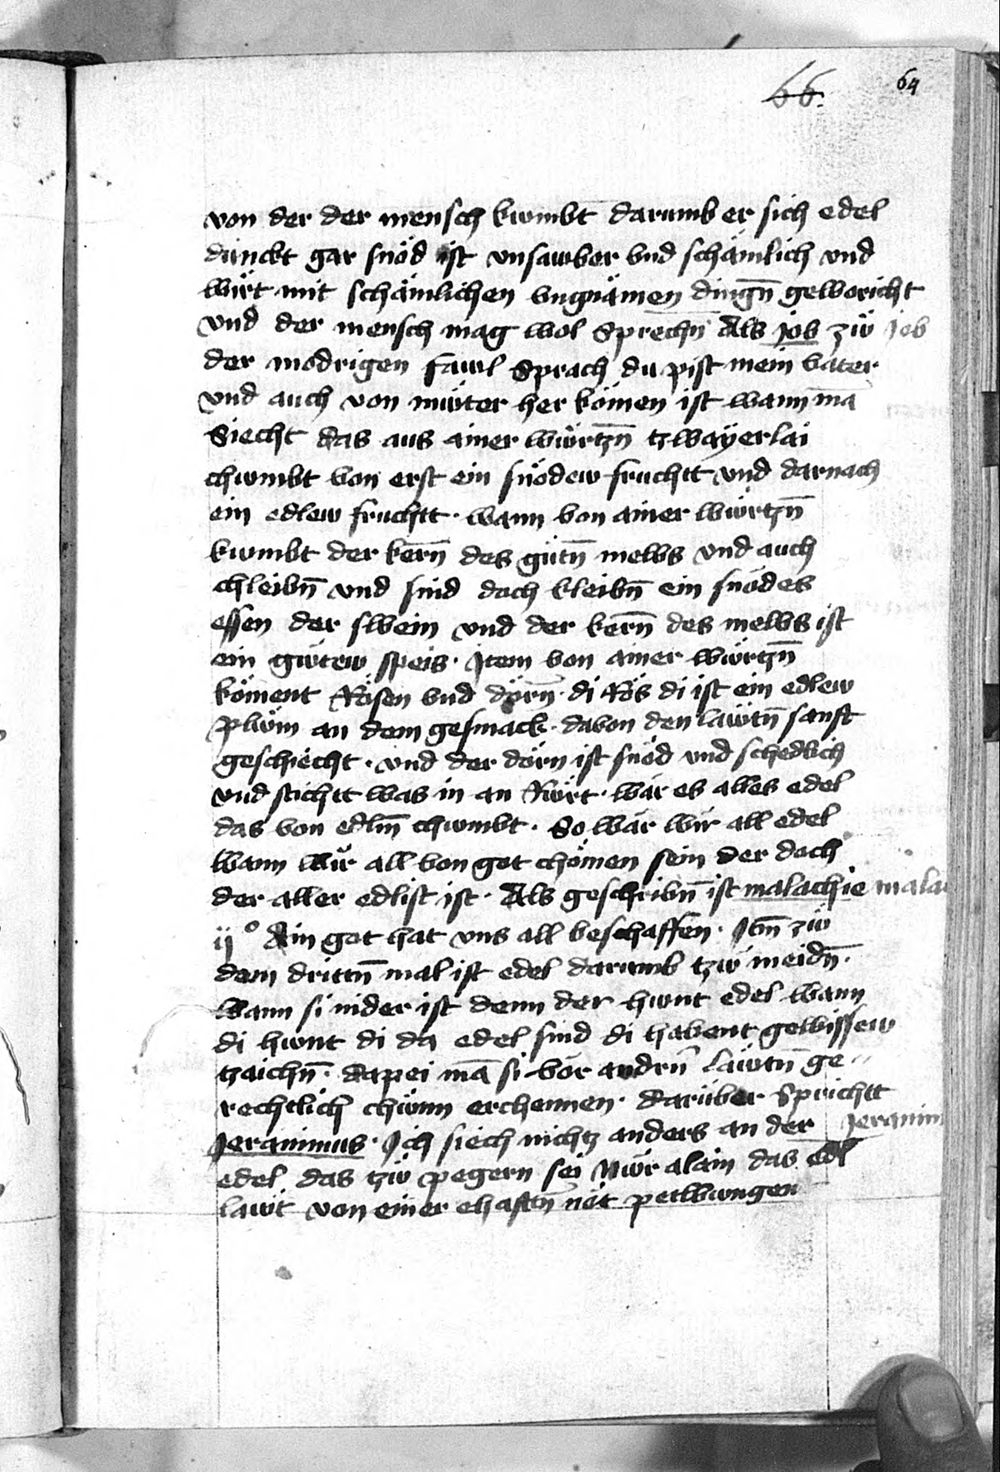 66. 64
von der der mensch kwmbt darumb er sich edel
dünckt gar snöd ist vnsawber vnd schämlich vnd
wirt mit schämlichen vngnämen dingn̄ geworicht
vnd der mensch mag wol sprechn̄ Als Job zw̎ Job
der modrigen fawl sprach du pist mein vater
vnd auch von mw̎ter her kömen ist wann mā
siecht das aus ainer würtzn̄ tzwayerlai
chwmbt von erst ein snödew fruchtt vnd darnach
ein edlew fruchtt · wann von ainer würtzn̄
kwmbt der kern̄ des gütn̄ melbs vnd auch
chleibn̄ vnd sind doch kleibn̄ ein snödes
essen der swein vnd der kern̄ des melbs ist
ein gw̎tew speis · Item von ainer würtzn̄
köment Rösen vnd dörn̄ · di Rös di ist ein edlew
plw̎m an dem gesmack · davon den läwtn̄ sanft
geschiecht · vnd der dörn ist snöd vnd schedlich
vnd stichtt was in an Rw̎rt · wär es alles edel
das von edlm̄ chwmbt · So wär wir all edel
wann wir all von got chömen sein der doch
der aller edlist ist · Als geschribn̄ ist malachie mala
ij° Ain got hat vns all beschaffen · Itm̄ zw̎
dem drittn̄ mal ist edel darumb tzw̎ meidn̄ ·
wann si nider ist denn der hwnt edel wann
di hwnt di da edel sind di habent gewissew
tzaichn̄ · dapei mā si vor andrn̄ läwtn̄ ge
rechtlich chw̎nn erchennen · darüber sprichtt
Jeranimus · Ich siech nichtz anders an der Jeranim
edel das tzw̎ pegern sei Nw̎r alain das edl
läwt von einer ehaftn̄ nöt petwungen